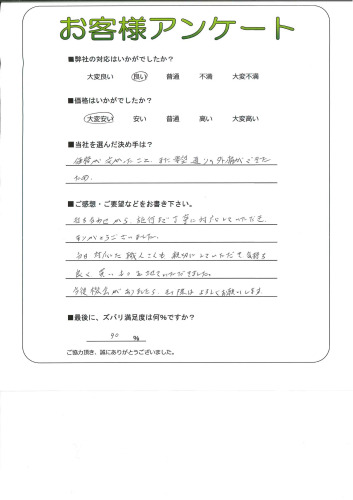 お客様アンケート
■弊社の対応はいかがでしたか？
大変良い 良い 普通 不満 大変不満
■価格はいかがでしたか？
大変安い 安い 普通 高い 大変高い
■当社を選んだ決め手は？
価格が安かったこと、また希望通りの外構ができた
ため。
■ご感想・ご要望などをお書き下さい。
打ち合わせから、絵付まで丁寧に対応していただき、
ありがとうございました。
当日対応いた職人さんも親切にしていただき気持ち
良く、買い ました。
今後機会がありましたら、その際はよろしくお願いします。
■最後に、ズバリ満足度は何％ですか？
90 ％
ご協力頂き、誠にありがとうございました。